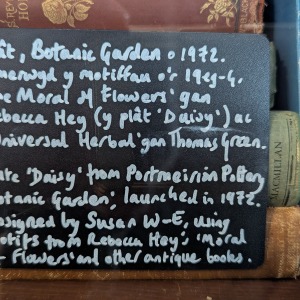 ât, Botanic Garden o 1972.
merwyd y motiffau o'r 19eg-G.
e Moral of Flowers' gan
ebecca Hey (y plât 'Daisy') ac
niversal Herbal' gan Thomas Green.
ate 'Daisy' from Portmeirion Pottery
otanic Garden, launched in 1972.
esigned by Susan W-E, using
otifs from Rebecca Hey's 'Moral
Flowers' and other antique books.
MACMILLAN